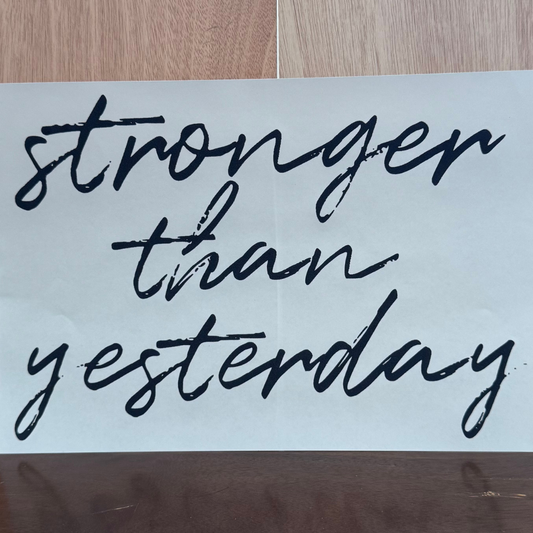 stronger
than
yesterday